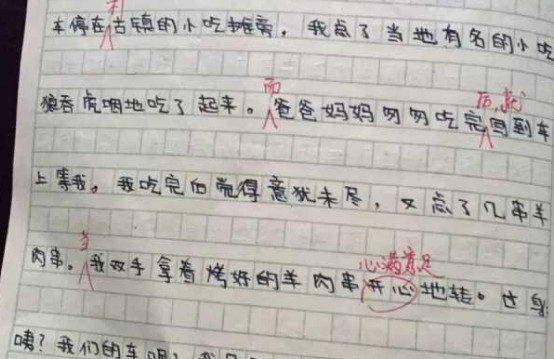 车停在古镇的小吃摊旁，我点了当地有名的小吃
而 后，就
狼吞虎咽地吃了起来。爸爸妈妈匆匆吃完回到车
上等我。我吃完后觉得意犹未尽，又点了几串羊
当 心满意足
肉串。我双手拿着烤好的羊肉串开心地转。过身
咦？我们的车呢？